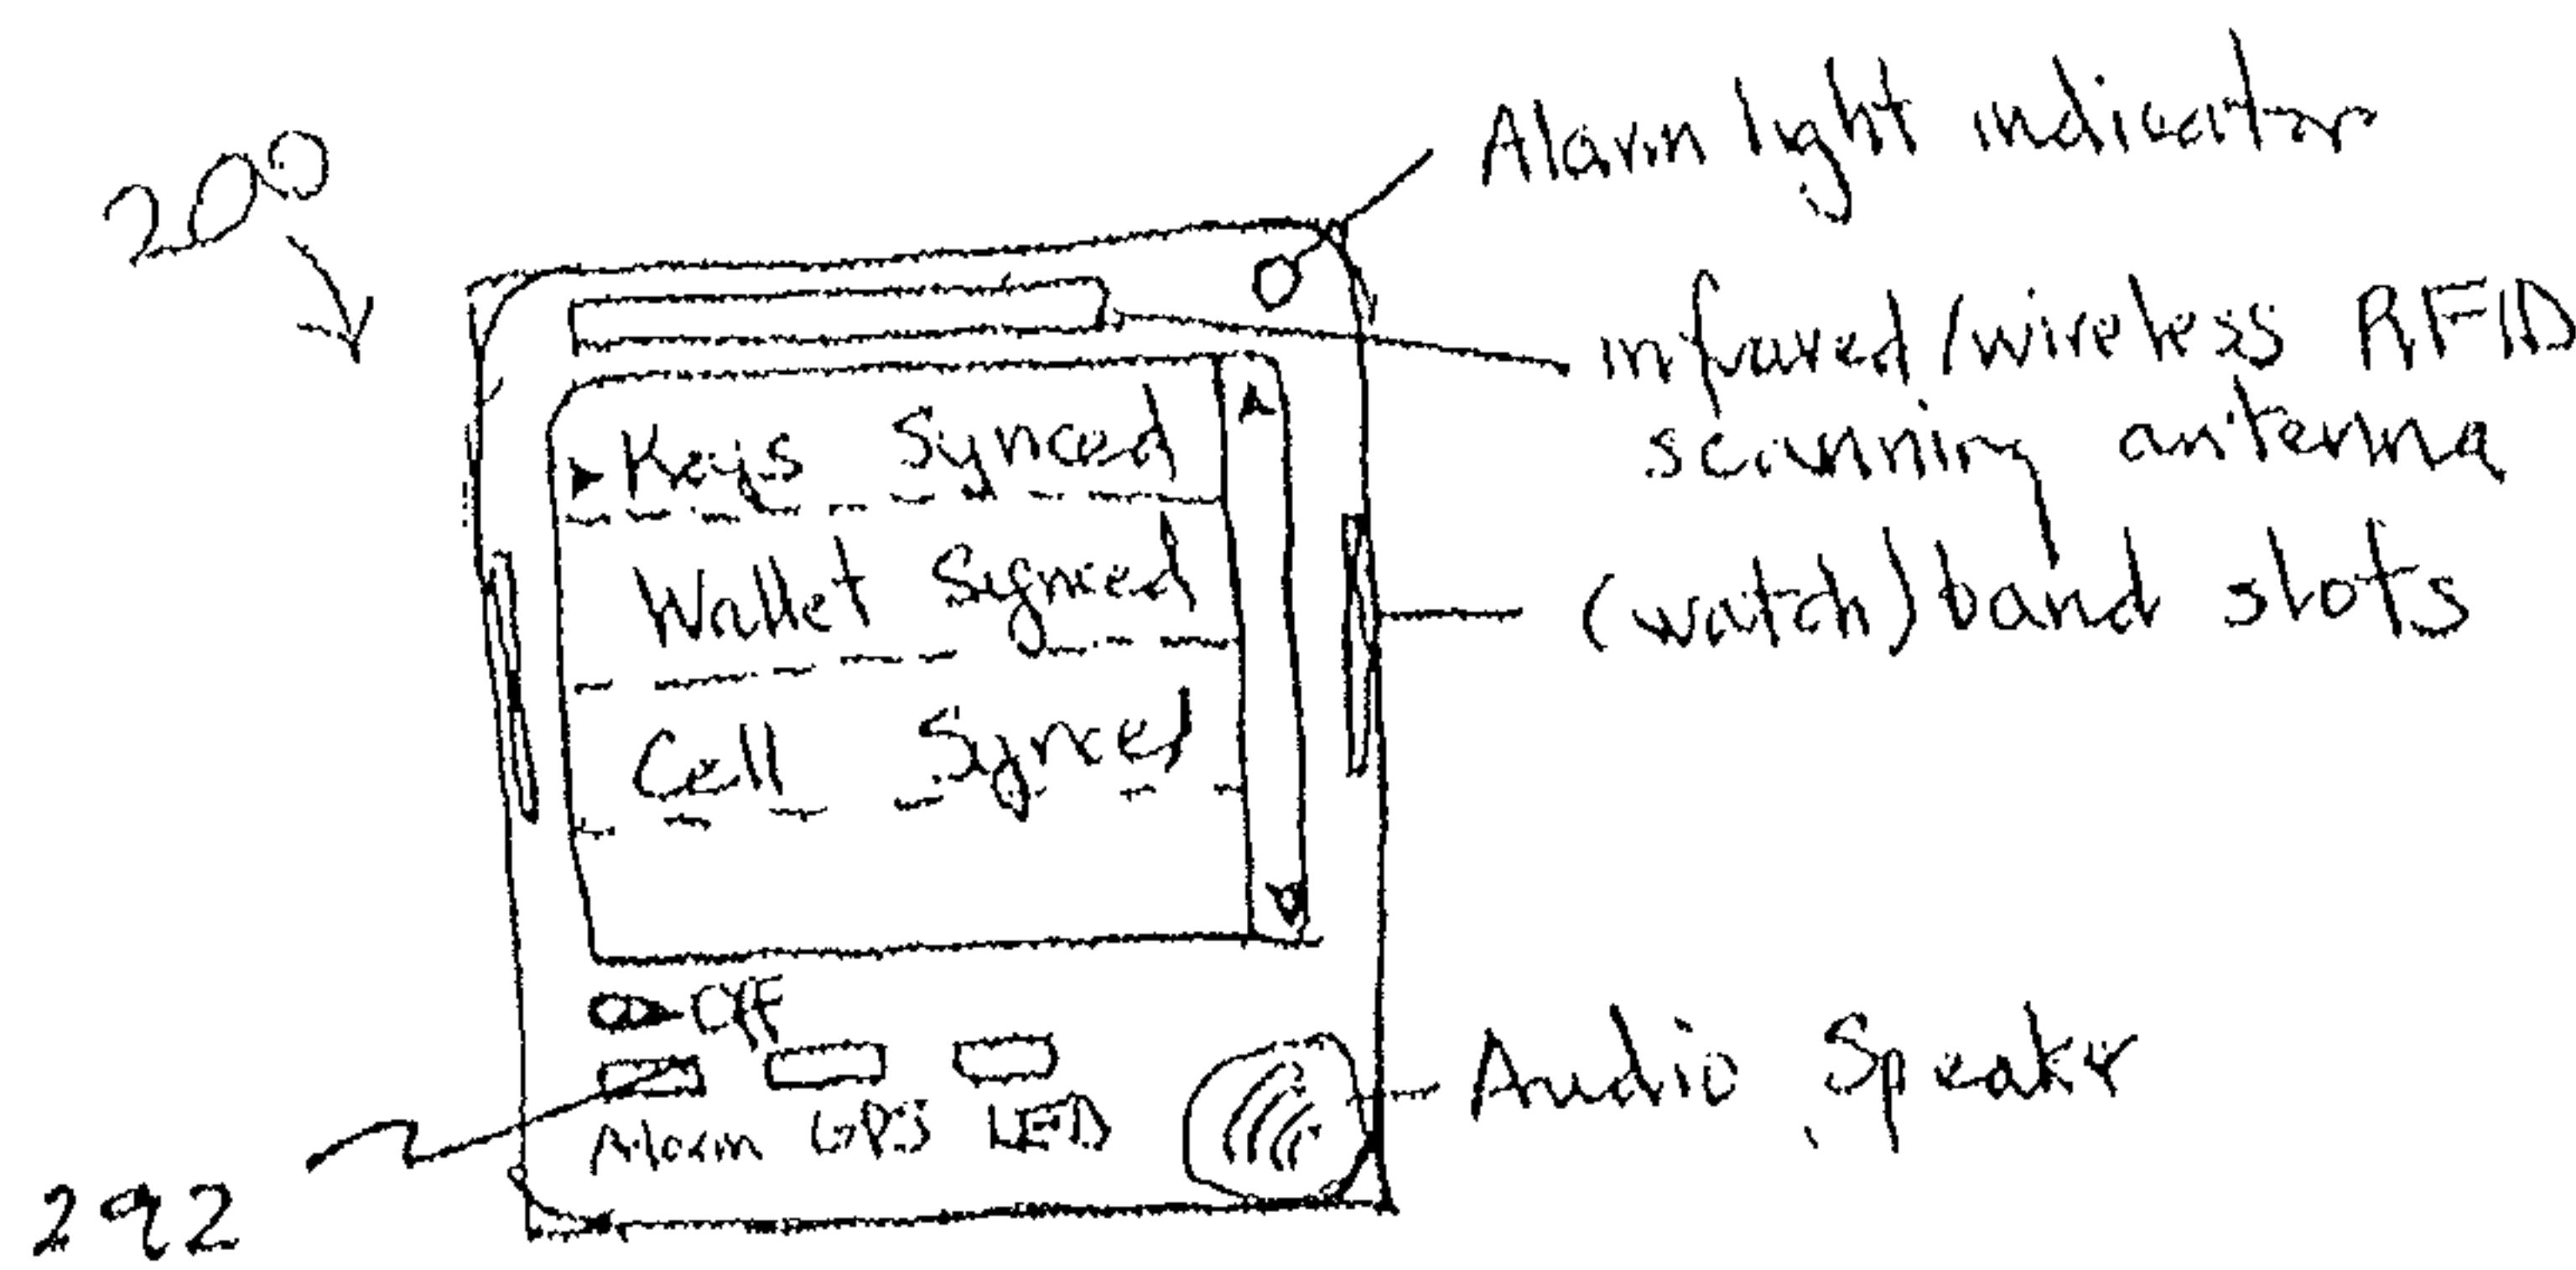 200
Alarm light indicator
infrared/wireless RFID
scanning antenna
Keys Synced
(watch) band slots
Wallet Synced
Cell Synced
Off
Alarm GPS LED
Audio Speaker
292